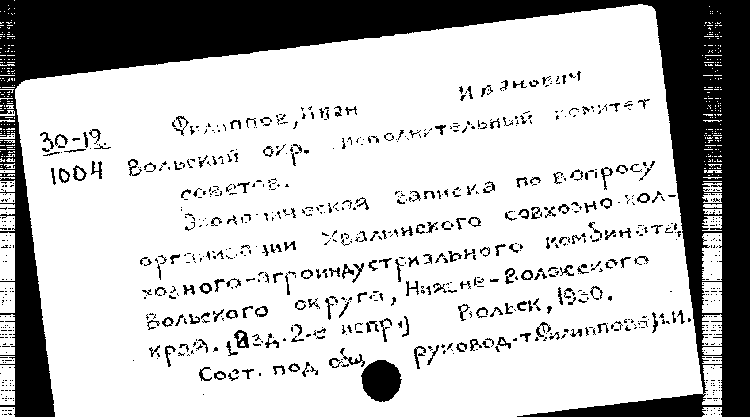 Филиппов, Иван Иванович
30-19
1004 Вольский окр. исполнительный комитет
советов.
Экономическая записка по вопросу
организации Хвалинского совхозно-кол-
хозного-агроиндустриального комбината,
Вольского округа, Нижне-Волжского
края. [Изд. 2-е испр.] Вольск, 1930.
Сост. под общ руковод. т. Филиппова И.И.